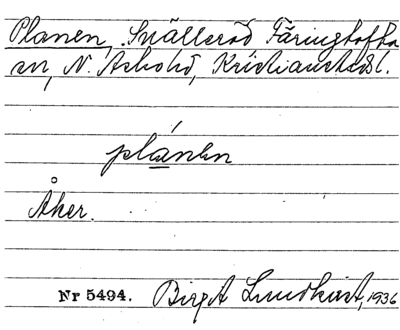 Planen, Snälleröd Färingtofta
sn, N. Åsbohd, Kristianstads l.
plánen
Åker.
Nr 5494. Birgit Lundkvist, 1936